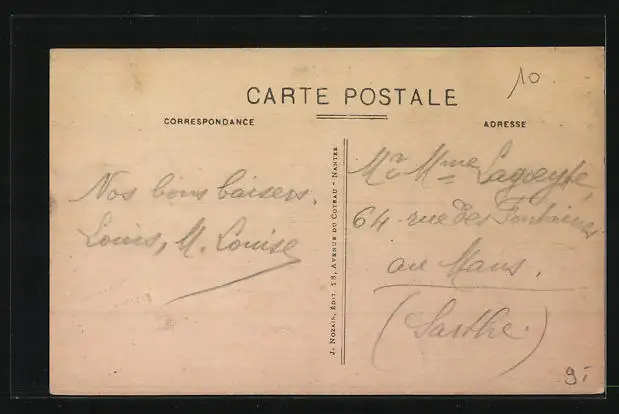 10
CARTE POSTALE
CORRESPONDANCE
ADRESSE
Nos bons baisers.
Louis, M. Louise
J. Nozais, Édit. 18, Avenue du Coteau - Nantes
Mr Mme
64 rue des Fontaines
au Mans.
(Sarthe.)
9.-